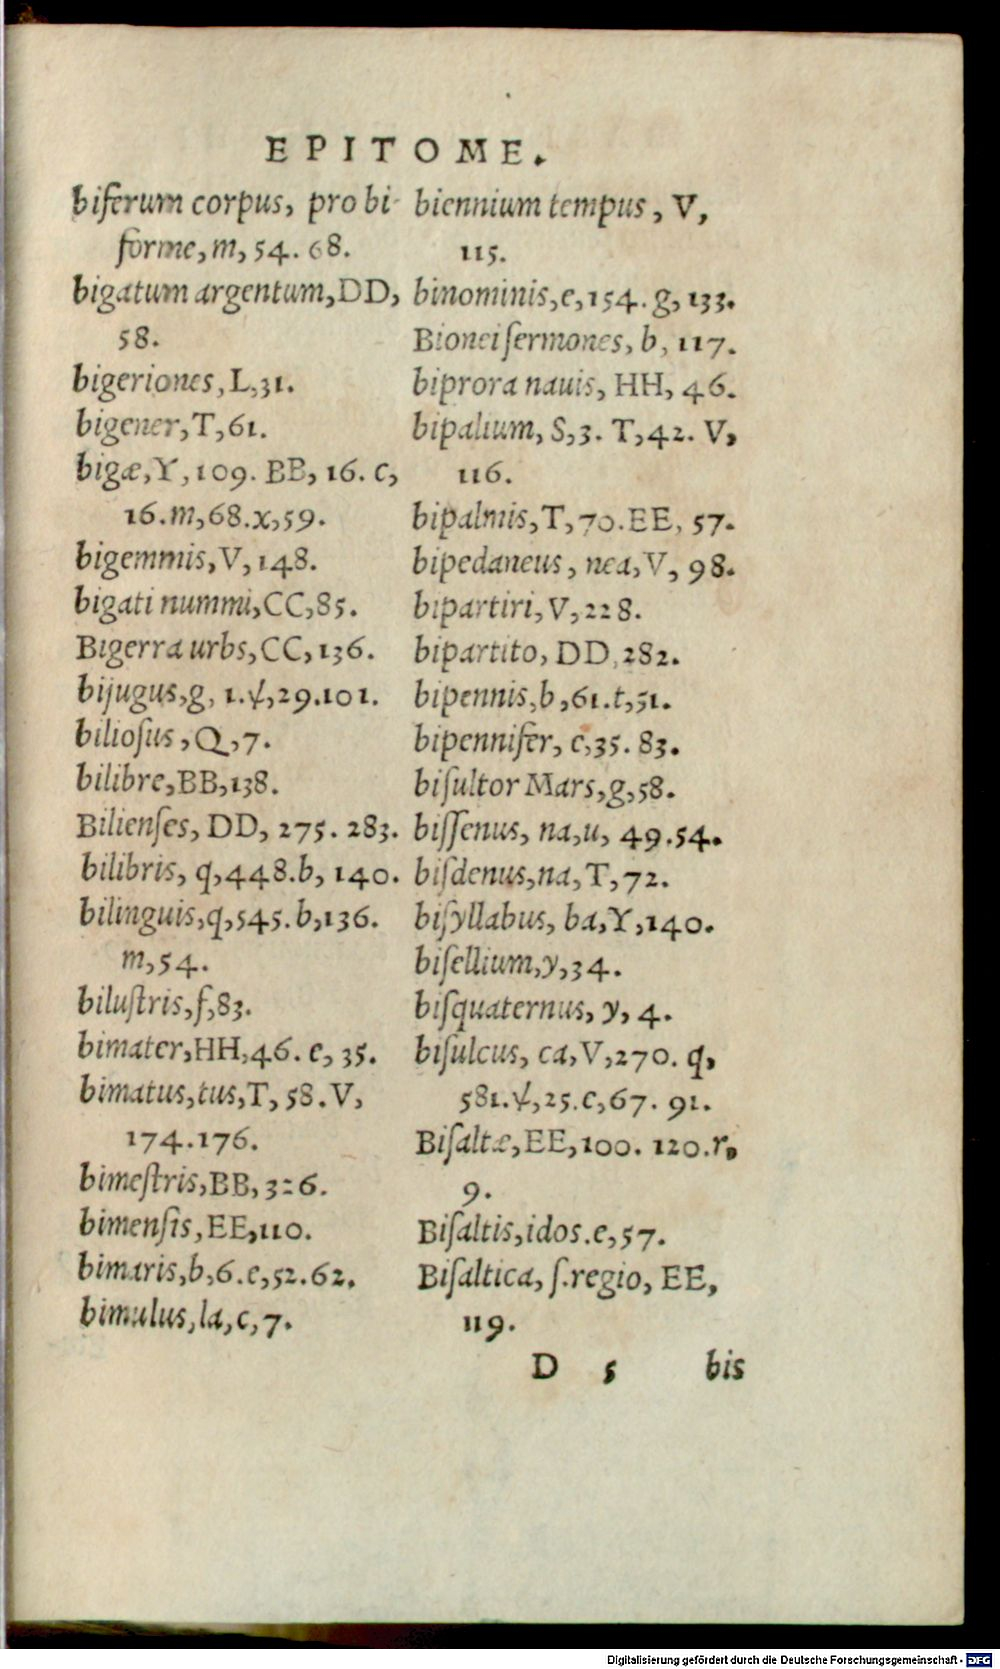 EPITOME.
biferum corpus, pro bi-
forme, m, 54. 68.
bigatum argentum, DD,
58.
bigeriones, L, 31.
bigener, T, 61.
bigæ, Y, 109. BB, 16. c,
16. m, 68. x, 59.
bigemmis, V, 148.
bigati nummi, CC, 85.
Bigerra urbs, CC, 136.
bijugus, g, 1. ψ, 29. 101.
biliosus, Q, 7.
bilibre, BB, 138.
Bilienses, DD, 275. 283.
bilibris, q, 448. b, 140.
bilinguis, q, 545. b, 136.
m, 54.
bilustris, f, 83.
bimater, HH, 46. e, 35.
bimatus, tus, T, 58. V,
174. 176.
bimestris, BB, 326.
bimensis, EE, 110.
bimaris, b, 6. e, 52. 62.
bimulus, la, c, 7.
biennium tempus, V,
115.
binominis, e, 154. g, 133.
Bionei sermones, b, 117.
biprora nauis, HH, 46.
bipalium, S, 3. T, 42. V,
116.
bipalmis, T, 70. EE, 57.
bipedaneus, nea, V, 98.
bipartiri, V, 228.
bipartito, DD, 282.
bipennis, b, 61. t, 51.
bipennifer, e, 35. 83.
bisultor Mars, g, 58.
bissenus, na, u, 49. 54.
bisdenus, na, T, 72.
bisyllabus, ba, Y, 140.
bisellium, y, 34.
bisquaternus, y, 4.
bisulcus, ca, V, 270. q,
581. ψ, 25. c, 67. 91.
Bisaltæ, EE, 100. 120. r,
9.
Bisaltis, idos. e, 57.
Bisaltica, s. regio, EE,
119.
D 5 bis
Digitalisierung gefördert durch die Deutsche Forschungsgemeinschaft - DFG